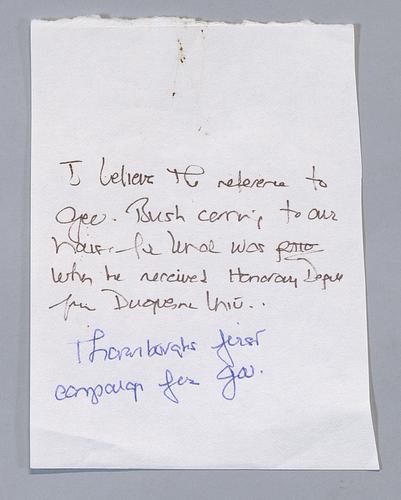 I believe the reference to
Geo. Bush coming to our
house for lunch was
when he received Honorary Degree
from Duquesne Univ..
Thornburghs first
campaign for Gov.